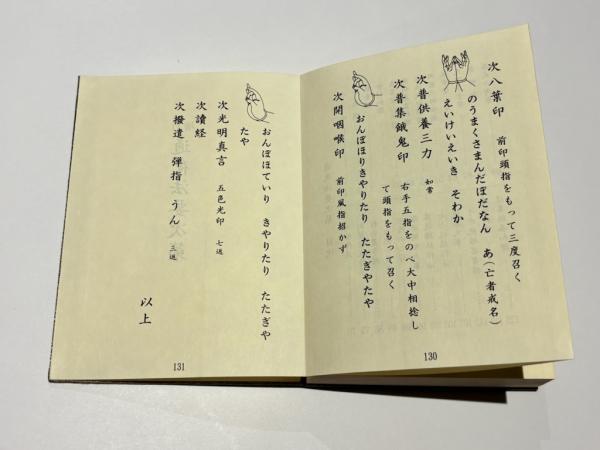 次八葉印　前印頭指をもって三度召く
のうまくさまんだぼだなん　あ（亡者戒名）
えいけいえいき　そわか
次普供養三力　如常
次普集餓鬼印　右手五指をのべ大中相捻し
て頭指をもって召く
おんぼほりきやりたり　たたぎやたや
次開咽喉印　前印風指招かず
130
おんぼほていり　きやりたり　たたぎや
たや
次光明真言　五色光印　七返
次讀経
次撥遣　弾指　うん　三返
以上
131